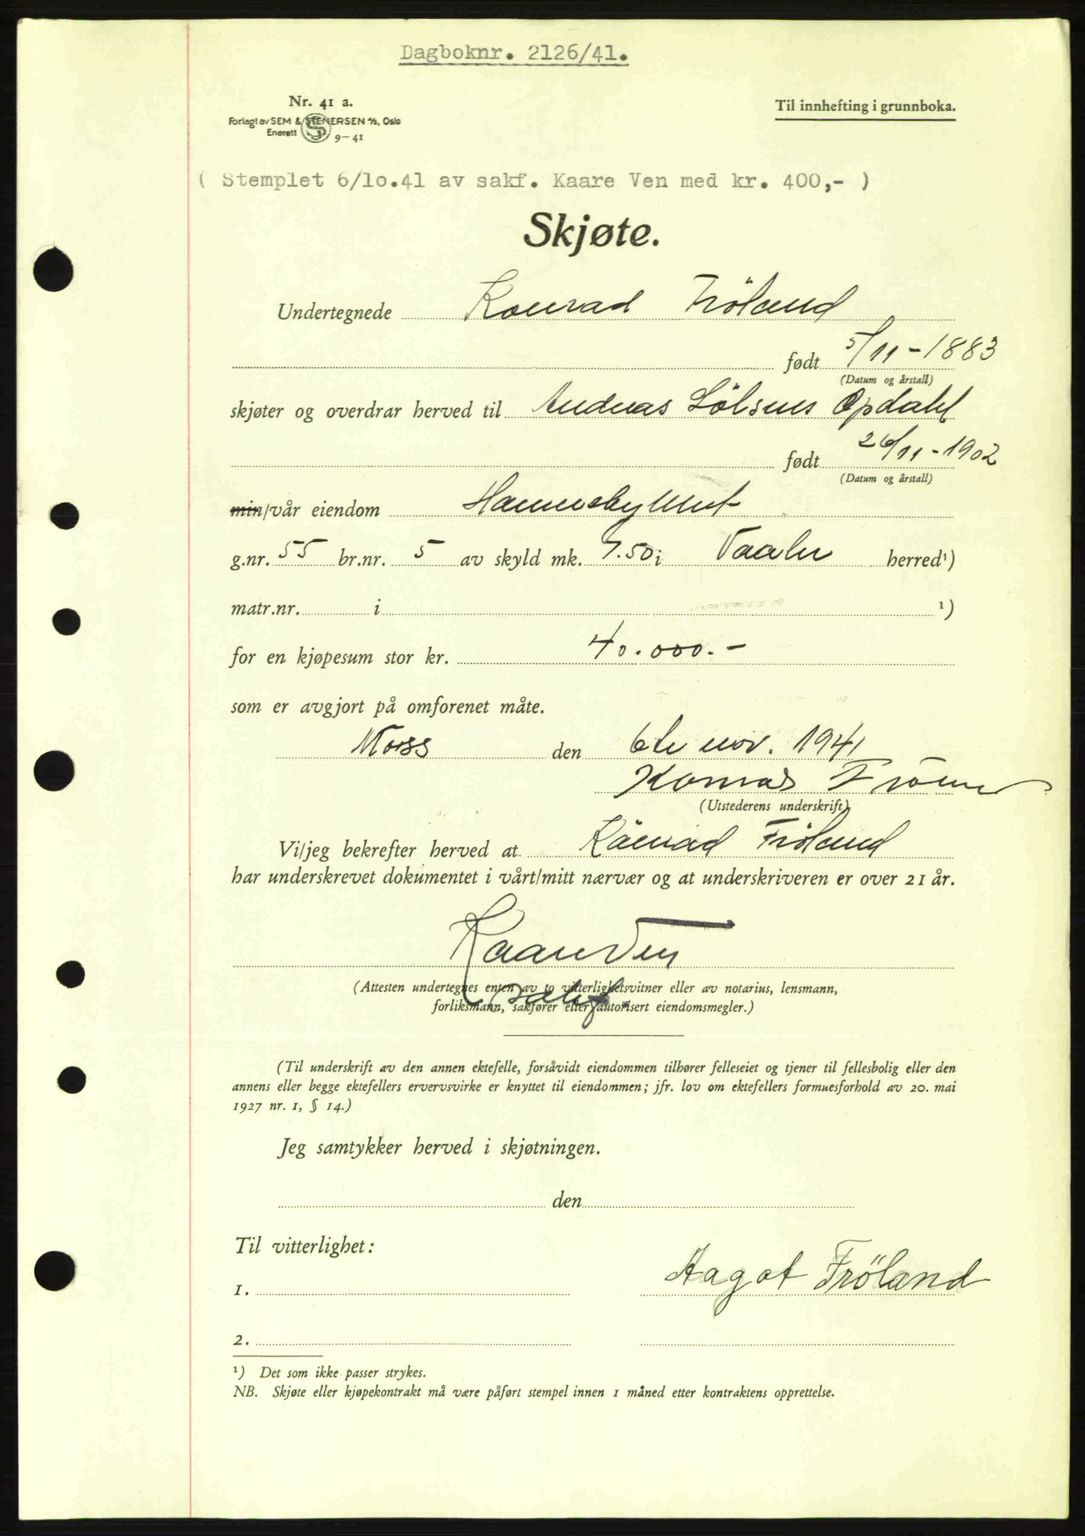 Dagboknr. 2126/41.
Nr. 41 a.
Forlagt av SEM & STENERSEN A/S, Oslo
Enerett 9-41
Til innhefting i grunnboka.
( Stemplet 6/10.41 av sakf. Kaare Ven med kr. 400,- )
Skjøte.
Undertegnede Konrad Frøland
født 5/11-1883
(Datum og årstall)
skjøter og overdrar herved til Andreas Opdahl
født 26/11-1902
(Datum og årstall)
min/vår eiendom
g.nr. 55 br.nr. 5 av skyld mk. 7.50 i Vaaler herred¹)
matr.nr. i ¹)
for en kjøpesum stor kr. 40.000.-
som er avgjort på omforenet måte.
Moss den 6te nov. 1941
Konrad Frøland
(Utstederens underskrift)
Vi/jeg bekrefter herved at Konrad Frøland
har underskrevet dokumentet i vårt/mitt nærvær og at underskriveren er over 21 år.
Kaare Ven
sakf.
(Attesten undertegnes enten av to vitterlighetsvitner eller av notarius, lensmann,
forliksmann, sakfører eller autorisert eiendomsmegler.)
(Til underskrift av den annen ektefelle, forsåvidt eiendommen tilhører felleseiet og tjener til fellesbolig eller den
annens eller begge ektefellers ervervsvirke er knyttet til eiendommen; jfr. lov om ektefellers formuesforhold av 20. mai
1927 nr. 1, § 14.)
Jeg samtykker herved i skjøtningen.
den
Til vitterlighet:
Aagot Fröland
1.
2.
¹) Det som ikke passer strykes.
NB. Skjøte eller kjøpekontrakt må være påført stempel innen 1 måned etter kontraktens opprettelse.